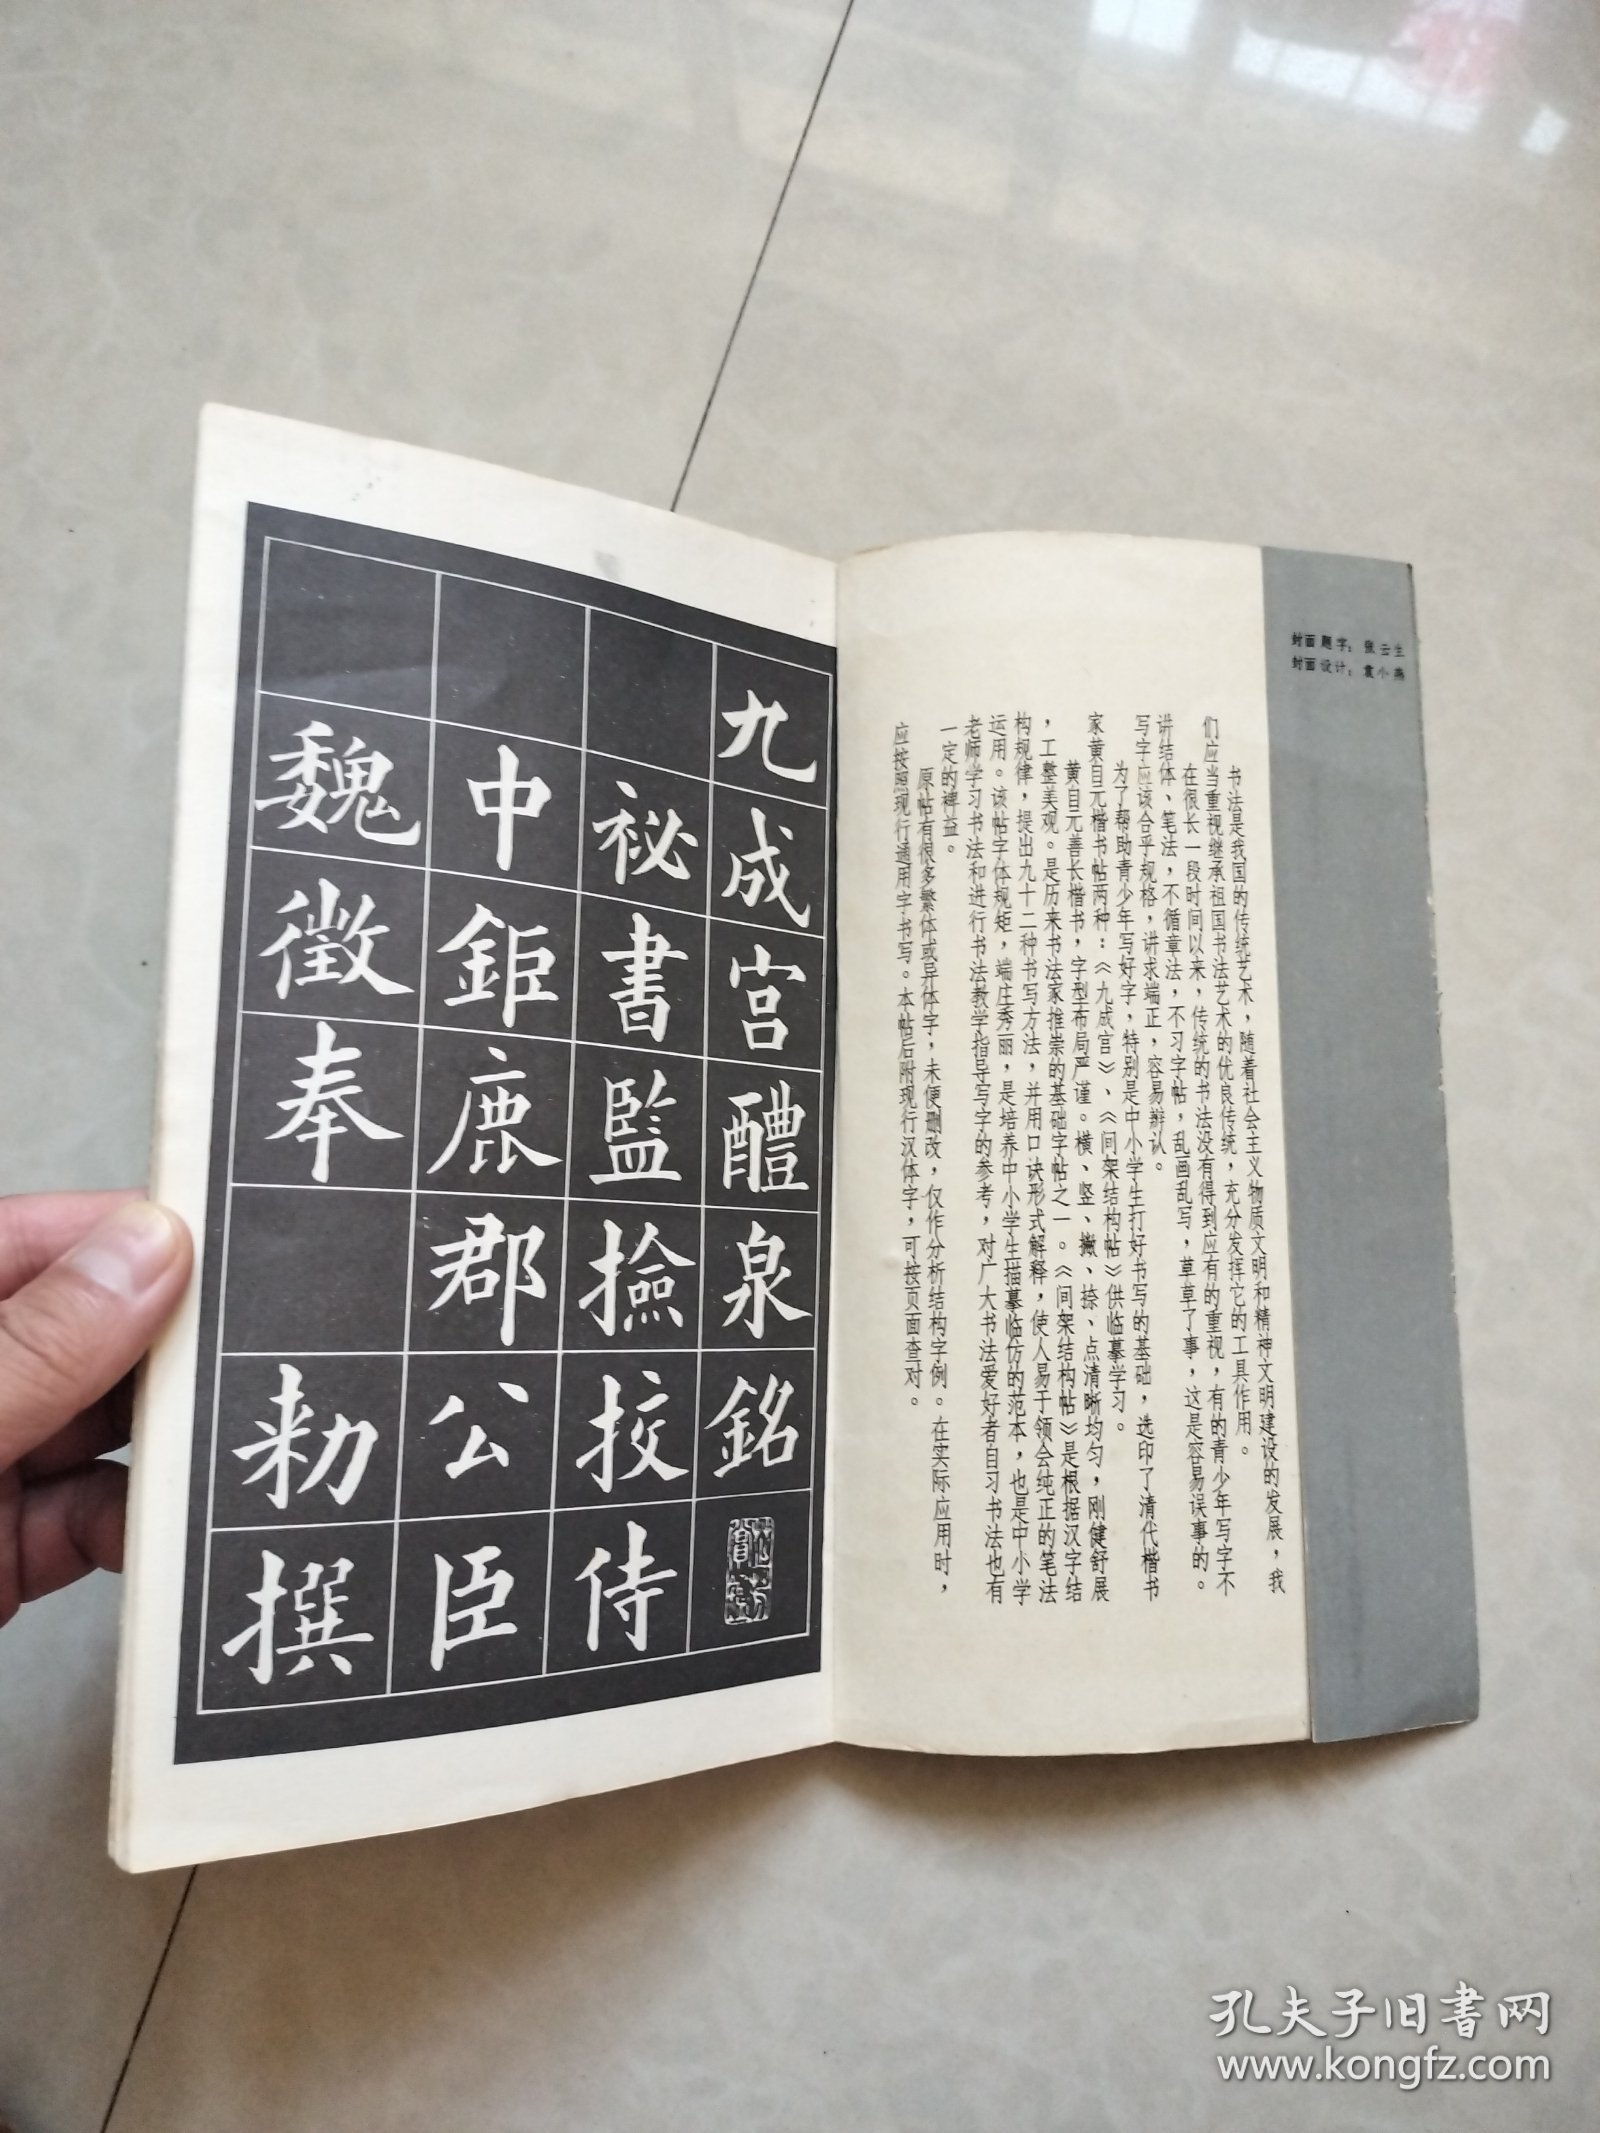 封面题字：张云生
封面设计：袁小燕
书法是我国的传统艺术，随着社会主义物质文明和精神文明建设的发展，我
们应当重视继承祖国书法艺术的优良传统，充分发挥它的工具作用。
在很长一段时间以来，传统的书法没有得到应有的重视，有的青少年写字不
讲结体、笔法，不循章法，不习字帖，乱画乱写，草草了事，这是容易误事的。
写字应该合乎规格，讲求端正，容易辩认。
为了帮助青少年写好字，特别是中小学生打好书写的基础，选印了清代楷书
家黄自元楷书帖两种：《九成宫》、《间架结构帖》供临摹学习。
黄自元善长楷书，字型布局严谨。横、竖、撇、捺、点清晰均匀，刚健舒展
，工整美观。是历来书法家推崇的基础字帖之一。《间架结构帖》是根据汉字结
构规律，提出九十二种书写方法，并用口诀形式解释，使人易于领会纯正的笔法
运用。该帖字体规矩，端庄秀丽，是培养中小学生描摹临仿的范本，也是中小学
老师学习书法和进行书法教学指导写字的参考，对广大书法爱好者自习书法也有
一定的裨益。
原帖有很多繁体或异体字，未便删改，仅作分析结构字例。在实际应用时，
应按照现行通用字书写。本帖后附现行汉体字，可按页面查对。
九成宫醴泉銘
祕書監撿挍侍
中鉅鹿郡公臣
魏徵奉 勅撰
孔夫子旧书网
www.kongfz.com